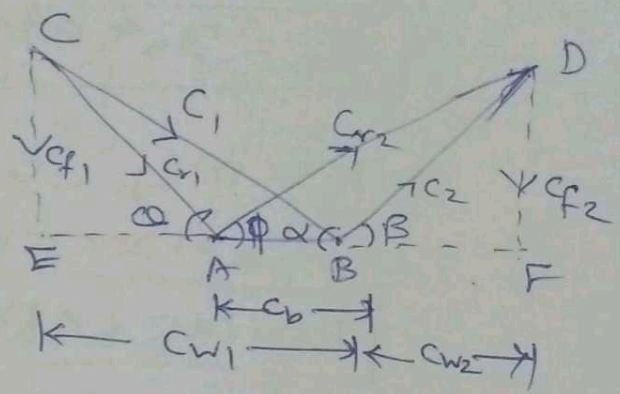 C
D
C₁
Cr₂
Cf₁
Cr₁
C₂
Cf₂
θ ϕ α β
E A B F
Cb
Cw₁ Cw₂